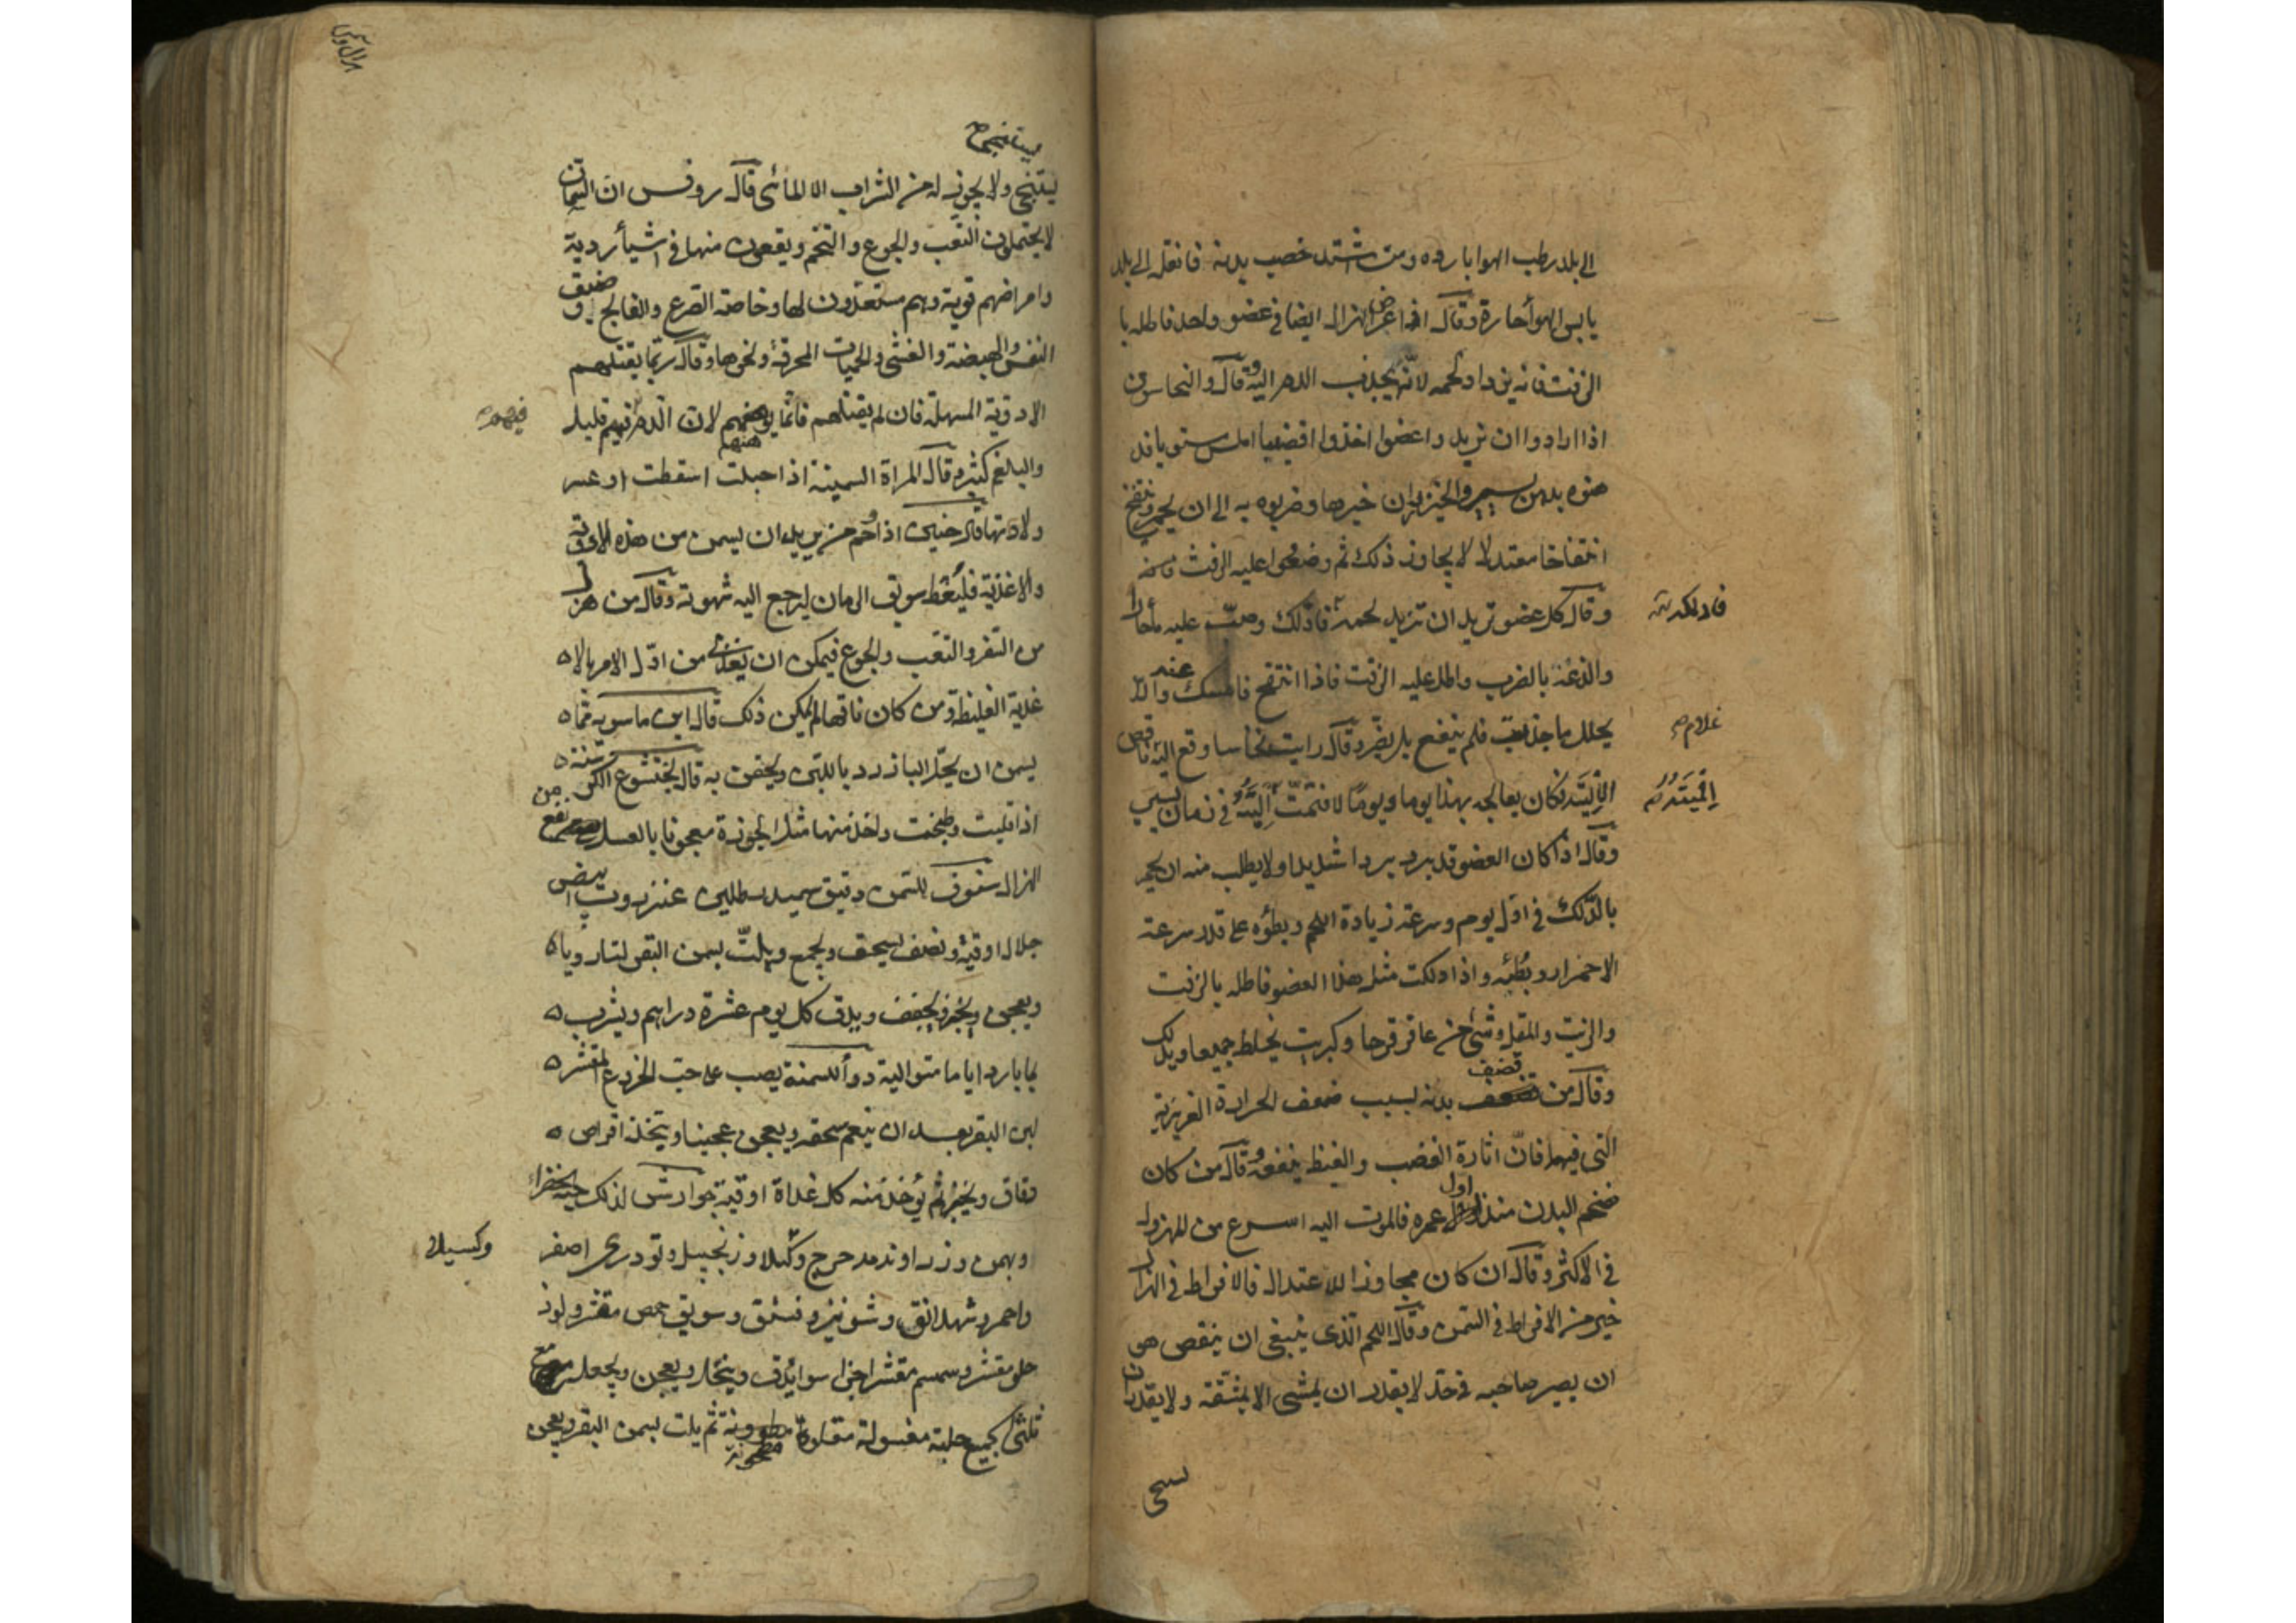 الى بلد رطب الهوا بارده ومت اشتد خصب بدنه فانقله الى بلد
يابس الهوأ حارة وقال اذا عرض الهزال ايضا فى عضو واحد فاطله با
الزفت فانه يزداد لحمه لانه يجذب الدم اليه وقال والنخاسون
اذا ارادوا ان يزيدوا عضوا اخذوا قضيبا املس ستويا فد
هنوه بدهن يسير والخيزران خيرها وضربوه به الى ان يحمر وينتفخ
انتفاخا معتدلا لا يجاوز ذلك ثم وضعوا عليه الزفت فاسخنه
وقال كل عضو تريد ان تزيد لحمه فادلك وصب عليه مأ حارا
فادلكه
والذعه بالضرب واطل عليه الزفت فاذا انتفخ فامسك عنه والا
يحلل ما جذبت فلم ينفع بل يضر وقال رايت نخاسا وقع اليه ناقص
غلام
الاليتيه فكان يعالجه بهذا يوما ويوما لا فتمت اليته فى زمان يسير
الاليتين
وقال اذا كان العضو قد برد بردا شديدا ولا يطلب منه ان يحمر
بالدلك فى اول يوم وسرعة زيادة اللحم وبطؤه على قدر سرعة
الاحمرار وبطئه واذا دلكت مثل هذا العضو فاطله بالزفت
والزيت والمقل وشئ من عاقر قرحا وكبريت يخلط جميعا ويدلك
قضف
وقال من بدنه لسبب ضعف الحرارة الغريزية
التى فيها فان اثارة الغضب والغيظ ينفعه وقال من كان
ضخم البدن منذ اول عمره فالموت اليه اسرع من المهزول
فى الاكثر وقال ان كان مجاوزا للاعتدال فالافراط فى الهزال
خير من الافراط فى السمن وقال اللحم الذى ينبغى ان ينقص هو
ان يصير صاحبه فى حد لا يقدر ان يمشى الا بمشقة ولا يقدر ان
يستنجى ولا يجوز له من الشراب الا المائى قال روفس ان السمان
لا يحتملون التعب والجوع والتخم ويقعون منها فى اشيأ ردية
وامراضهم قوية وهم مستعدون لها وخاصة الصرع والفالج وضيق
النفس والهيضة والغشى والحميات المحرقة ونحوها وقال ربما يقتلهم
الادوية المسهلة فان لم يقتلهم فانما لان الدم فيهم قليل
والبلغم كثير وقال المراة السمينة اذا حبلت اسقطت او عسر
ولادتها قال حنين اذا حم من يريد ان يسمن من هذه الادوية
والاغذية فليعط سويق الرمان ليرجع اليه شهوته وقال من هزل
من السفر والتعب والجوع فيمكن ان يغذى من اول الامر بالا
غذية الغليظة ومن كان ناقها لم يمكن ذلك قال ابن ماسويه مما
يسمن ان يحل الباذرد باللبن ويحقن به قال بختيشوع الكرسنة
اذا قليت وطبخت واخذ منها مثل الجوزة معجونا بالعسل نفع من
الهزال سفوف للسمن دقيق سميد رطلين عنزروت ابيض
جلال اوقية ونصف يسحق ويجمع ويلت بسمن البقر لتا رويا
ويعجن ويخبز ويجفف ويدق كل يوم عشرة دراهم ويشرب
بما بارد اياما متوالية دوأ للسمنة يصب على حب الخروع المقشر
لبن البقر بعد ان ينعم سحقه ويعجن عجينا ويتخذ اقراص
رقاق ويخبز ثم يؤخذ منه كل غداة اوقية جوارش لذلك حبة الخضراء
وبهمن وزراوند مدحرج وكيلا وزنجبيل وتودرى اصفر
وكسيلا
واحمر وشهدانق وشونيز وفستق وسويق حمص مقشر ولوز
حلو مقشر وسمسم مقشر اجزا سوا يدق وينخل ويعجن ويجعل مع
ثلثى الجميع حلبة مغسولة مقلوة مطحونة ثم يلت بسمن البقر ويعجن